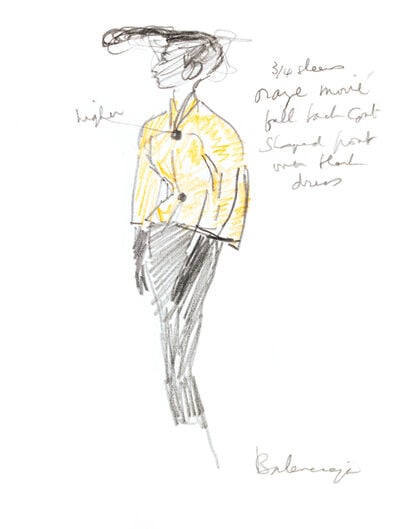 3/4 sleeves
orange moiré
full back coat
shaped front
over black
dress
higher
Balenciaga